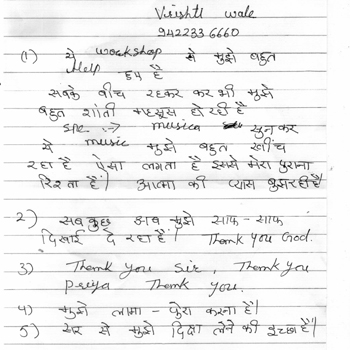 Virishtl wale
9422336660
(1) ये workshop से मुझे बहुत
Help हुई है
सबके बीच रहकर कर भी मुझे
बहुत शांती महसूस हो रही है
spe. music सुन कर
ये music मुझे बहुत खींच
रहा है ऐसा लगता है इससे मेरा पुराना
रिश्ता है। आत्मा की प्यास बुझ रही है
2) सब कुछ अब मुझे साफ - साफ
दिखाई दे रहा है। Thank you God.
3) Thank you Sir, Thank you
Priya Thank you.
4) मुझे लामा - फेरा करना है।
5) सर से मुझे दिक्षा लेने की इच्छा है।